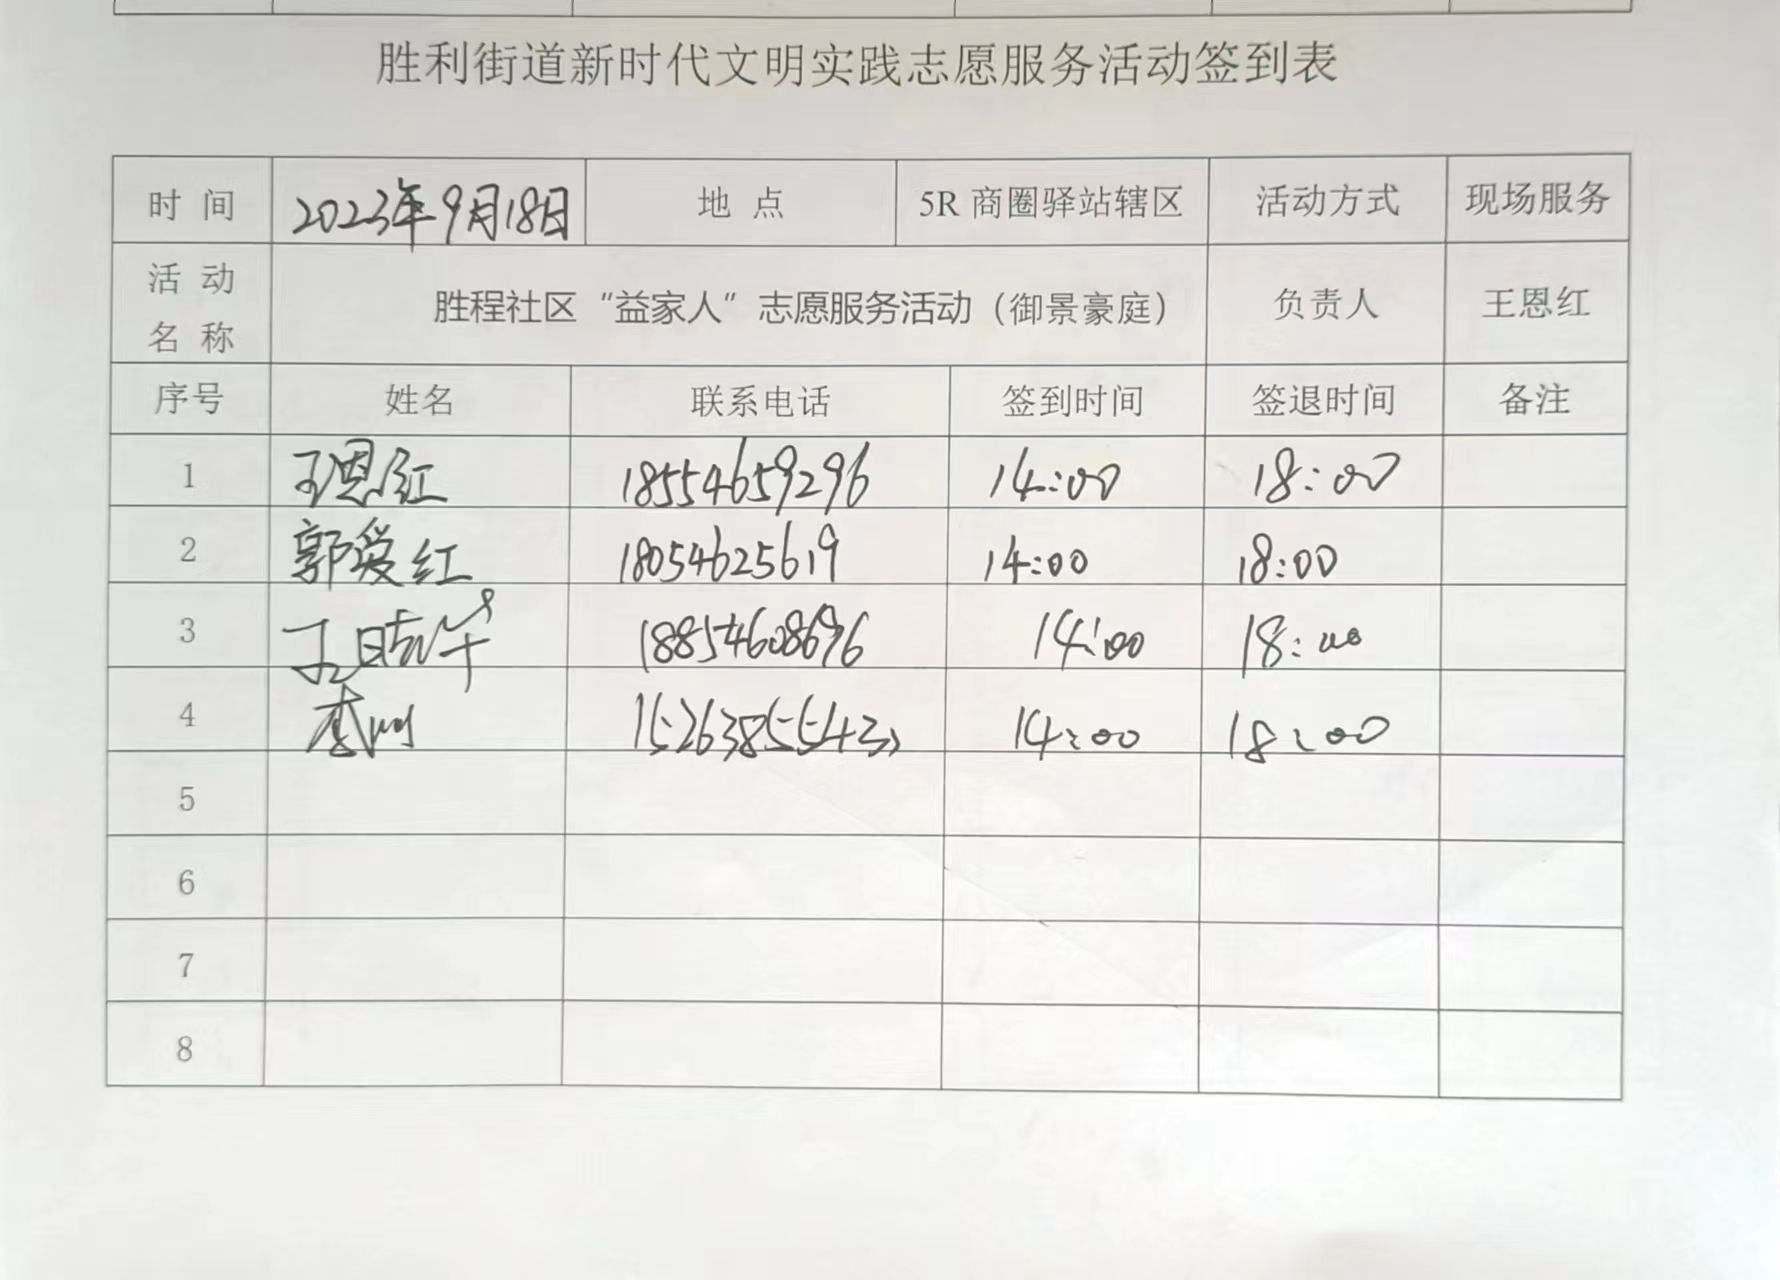 胜利街道新时代文明实践志愿服务活动签到表
时 间 2023年9月18日 地 点 5R 商圈驿站辖区 活动方式 现场服务
活 动 名 称 胜程社区“益家人”志愿服务活动（御景豪庭） 负责人 王恩红
序号 姓名 联系电话 签到时间 签退时间 备注
1 王恩红 18554659296 14:00 18:00
2 郭爱红 18054625619 14:00 18:00
3 18854608696 14:00 18:00
4 15263855543 14:00 18:00
5
6
7
8